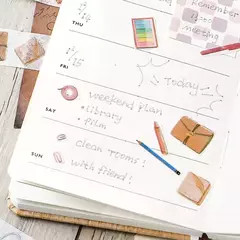 Remember
meeting
FRI
Today
SAT
weekend plan
• library
• film
SUN
clean rooms!
with friend!